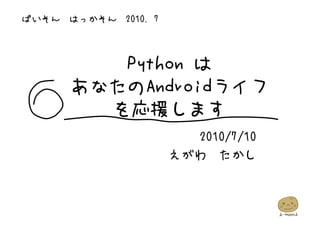 ぱいそん はっかそん 2010.7
Python は
あなたのAndroidライフ
を応援します
2010/7/10
えがわ たかし